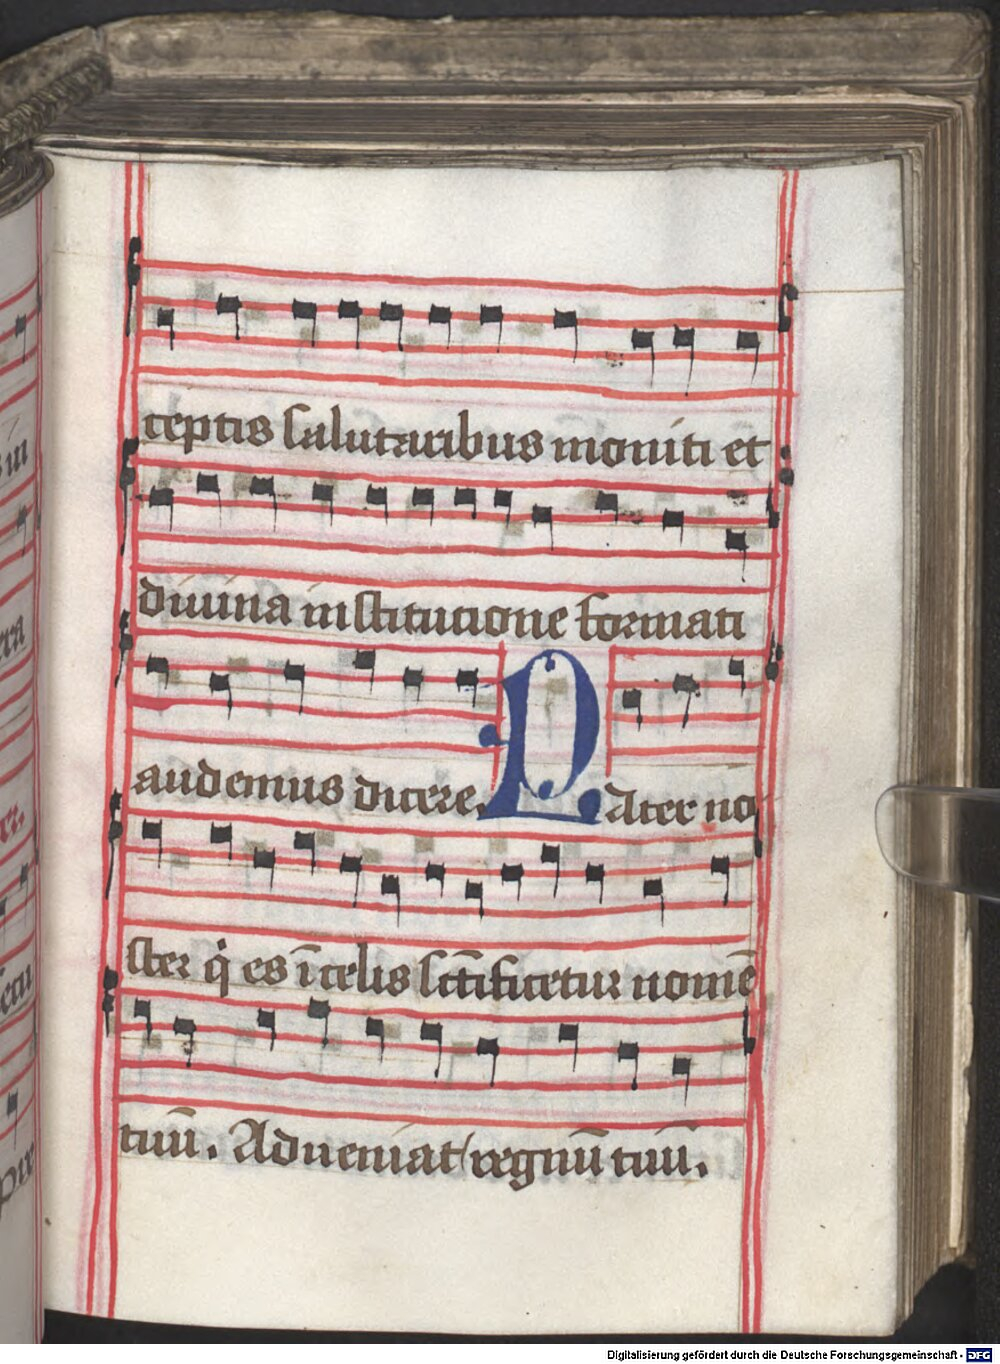 ceptis salutaribus moniti et
diuina institucione formati
audemus dicere. Pater no
ster q̇ es ī celis sc̄tificetur nomē
tuū. Adueniat regnū tuū.
Digitalisierung gefördert durch die Deutsche Forschungsgemeinschaft - DFG